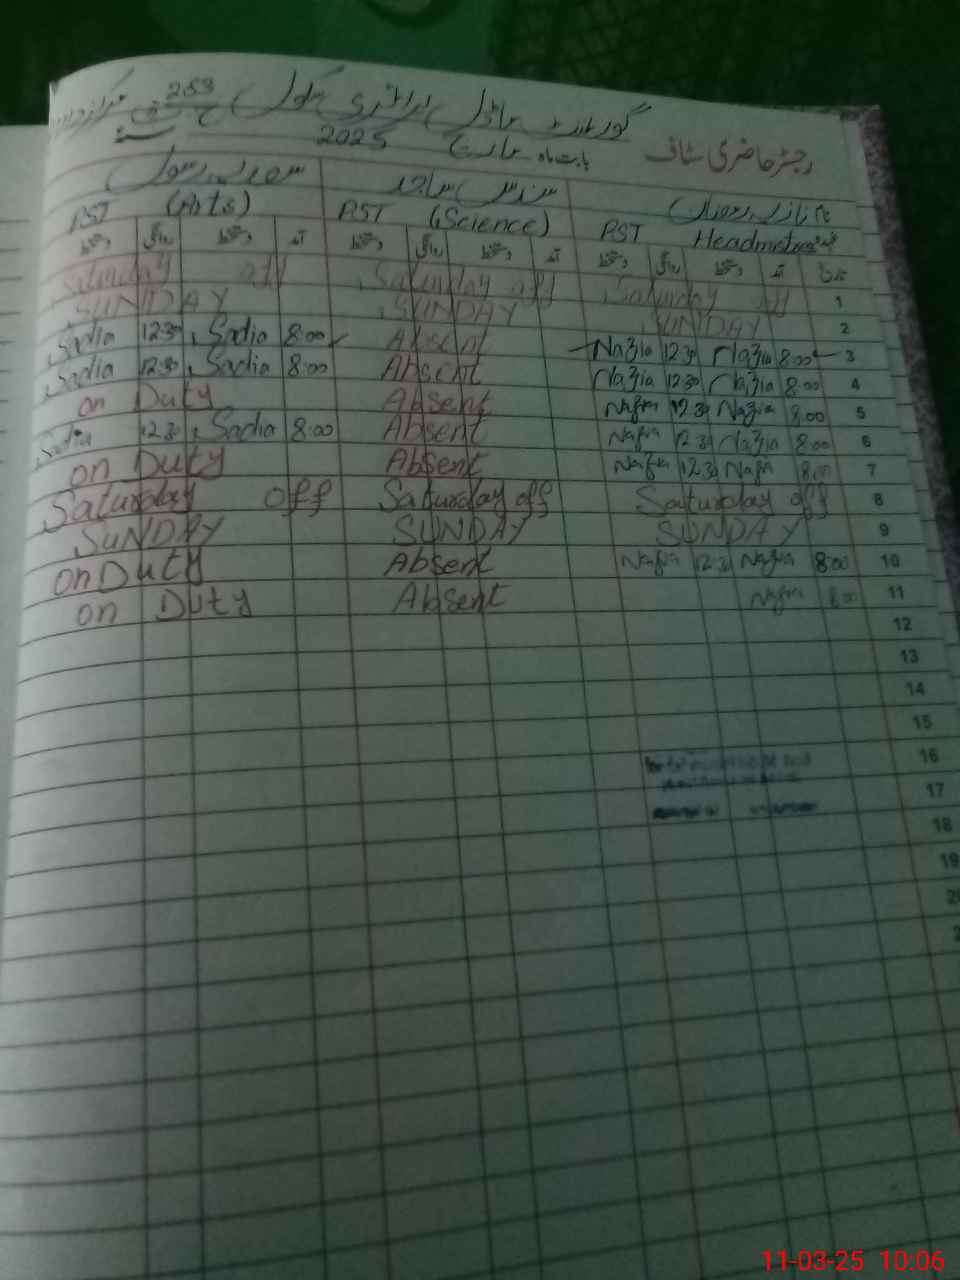 گورنمنٹ ماڈل پرائمری سکول 253
رجسٹر حاضری سٹاف بابت ماہ مارچ 2025
سعدیہ رسول سندس ساجد نازیہ رمضان
PST (Arts) PST (Science) PST Headmistress
دستخط روانگی دستخط آمد دستخط روانگی دستخط آمد دستخط روانگی دستخط آمد تاریخ
Saturday off Saturday off Saturday off 1
SUNDAY SUNDAY SUNDAY 2
Sadia 12:30 Sadia 8:00 Absent Nazia 12:30 Nazia 8:00 3
Sadia 12:30 Sadia 8:00 Absent Nazia 12:30 Nazia 8:00 4
on Duty Absent Nazia 12:30 Nazia 8:00 5
Sadia 12:30 Sadia 8:00 Absent Nazia 12:30 Nazia 8:00 6
on Duty Absent Nazia 12:30 Nazia 8:00 7
Saturday off Saturday off Saturday off 8
SUNDAY SUNDAY SUNDAY 9
on Duty Absent Nazia 12:30 Nazia 8:00 10
on Duty Absent Nazia 8:00 11
12
13
14
15
16
17
18
19
11-03-25 10:06